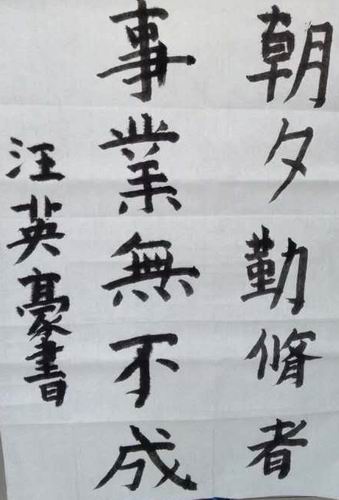 朝夕勤脩者
事業無不成
汪英豪書